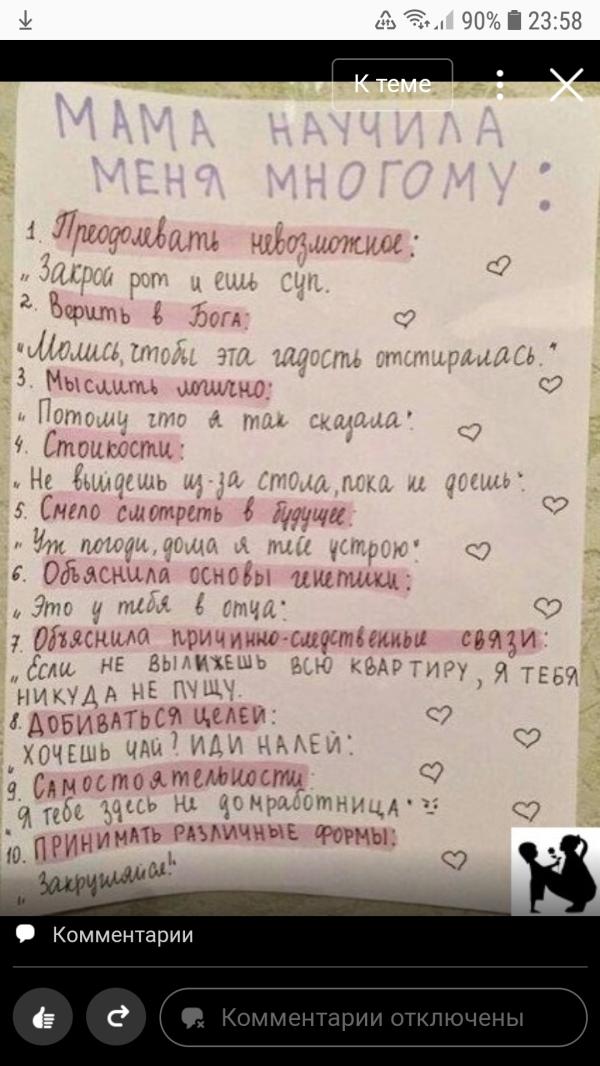 90% 23:58
К теме
МАМА НАУЧИЛА
МЕНЯ МНОГОМУ:
1. Преодолевать невозможное:
„Закрой рот и ешь суп.
2. Верить в Бога:
"Молись, чтобы эта гадость отстиралась."
3. Мыслить логично:
„Потому что я так сказала".
4. Стойкости:
„Не выйдешь из-за стола, пока не доешь".
5. Смело смотреть в будущее:
„Уж погоди, дома я тебе устрою"
6. Объяснила основы генетики:
„Это у тебя в отца"
7. Объяснила причинно-следственные связи:
„Если НЕ ВЫЛИЖЕШЬ ВСЮ КВАРТИРУ, Я ТЕБЯ
НИКУДА НЕ ПУЩУ.
8. ДОБИВАТЬСЯ ЦЕЛЕЙ:
„ХОЧЕШЬ ЧАЙ? ИДИ НАЛЕЙ"
9. Самостоятельности
"Я тебе здесь не домработница"
10. ПРИНИМАТЬ РАЗЛИЧНЫЕ ФОРМЫ:
„Закругляйся!"
Комментарии
Комментарии отключены